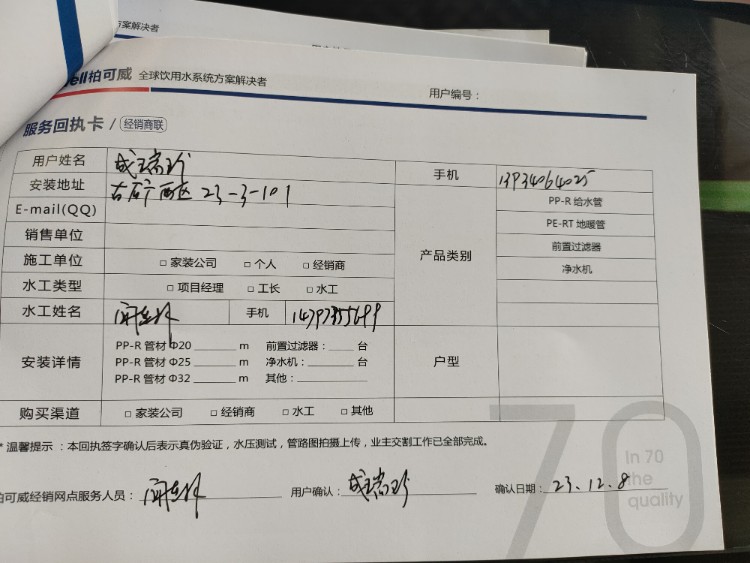 方案解决者
ell柏可威 全球饮用水系统方案解决者
用户编号：
服务回执卡 / 经销商联
用户姓名 成瑞珍 手机 13934064025
安装地址 古矿西区 23-3-101
E-mail(QQ)
销售单位
施工单位 □ 家装公司 □ 个人 □ 经销商
水工类型 □ 项目经理 □ 工长 □ 水工
水工姓名 手机
产品类别
PP-R 给水管
PE-RT 地暖管
前置过滤器
净水机
安装详情
PP-R 管材 Φ20 m 前置过滤器： 台
PP-R 管材 Φ25 m 净水机： 台
PP-R 管材 Φ32 m 其他：
户型
购买渠道 □ 家装公司 □ 经销商 □ 水工 □ 其他
* 温馨提示：本回执签字确认后表示真伪验证，水压测试，管路图拍摄上传，业主交割工作已全部完成。
70
In 70
the
quality
柏可威经销网点服务人员：
用户确认： 成瑞珍
确认日期： 23.12.8